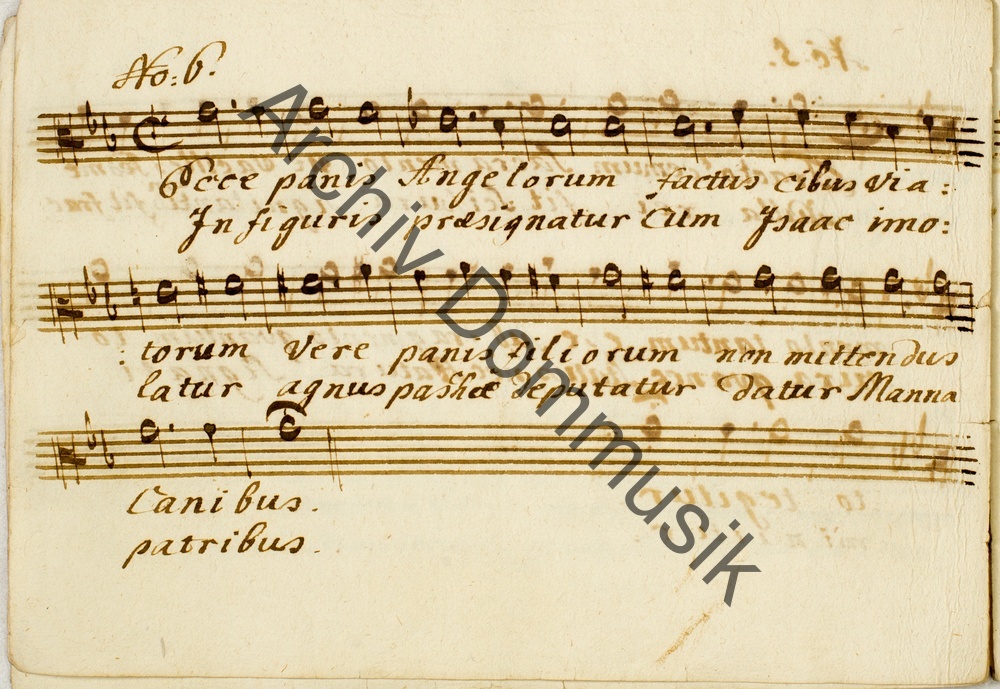 No: 6.
Ecce panis Angelorum factus cibus via:
In figuris præsignatur Cum Isaac imo:
: torum vere panis filiorum non mittendus
latur agnus paschæ deputatur datur Manna
Canibus.
patribus.
Archiv Dommusik